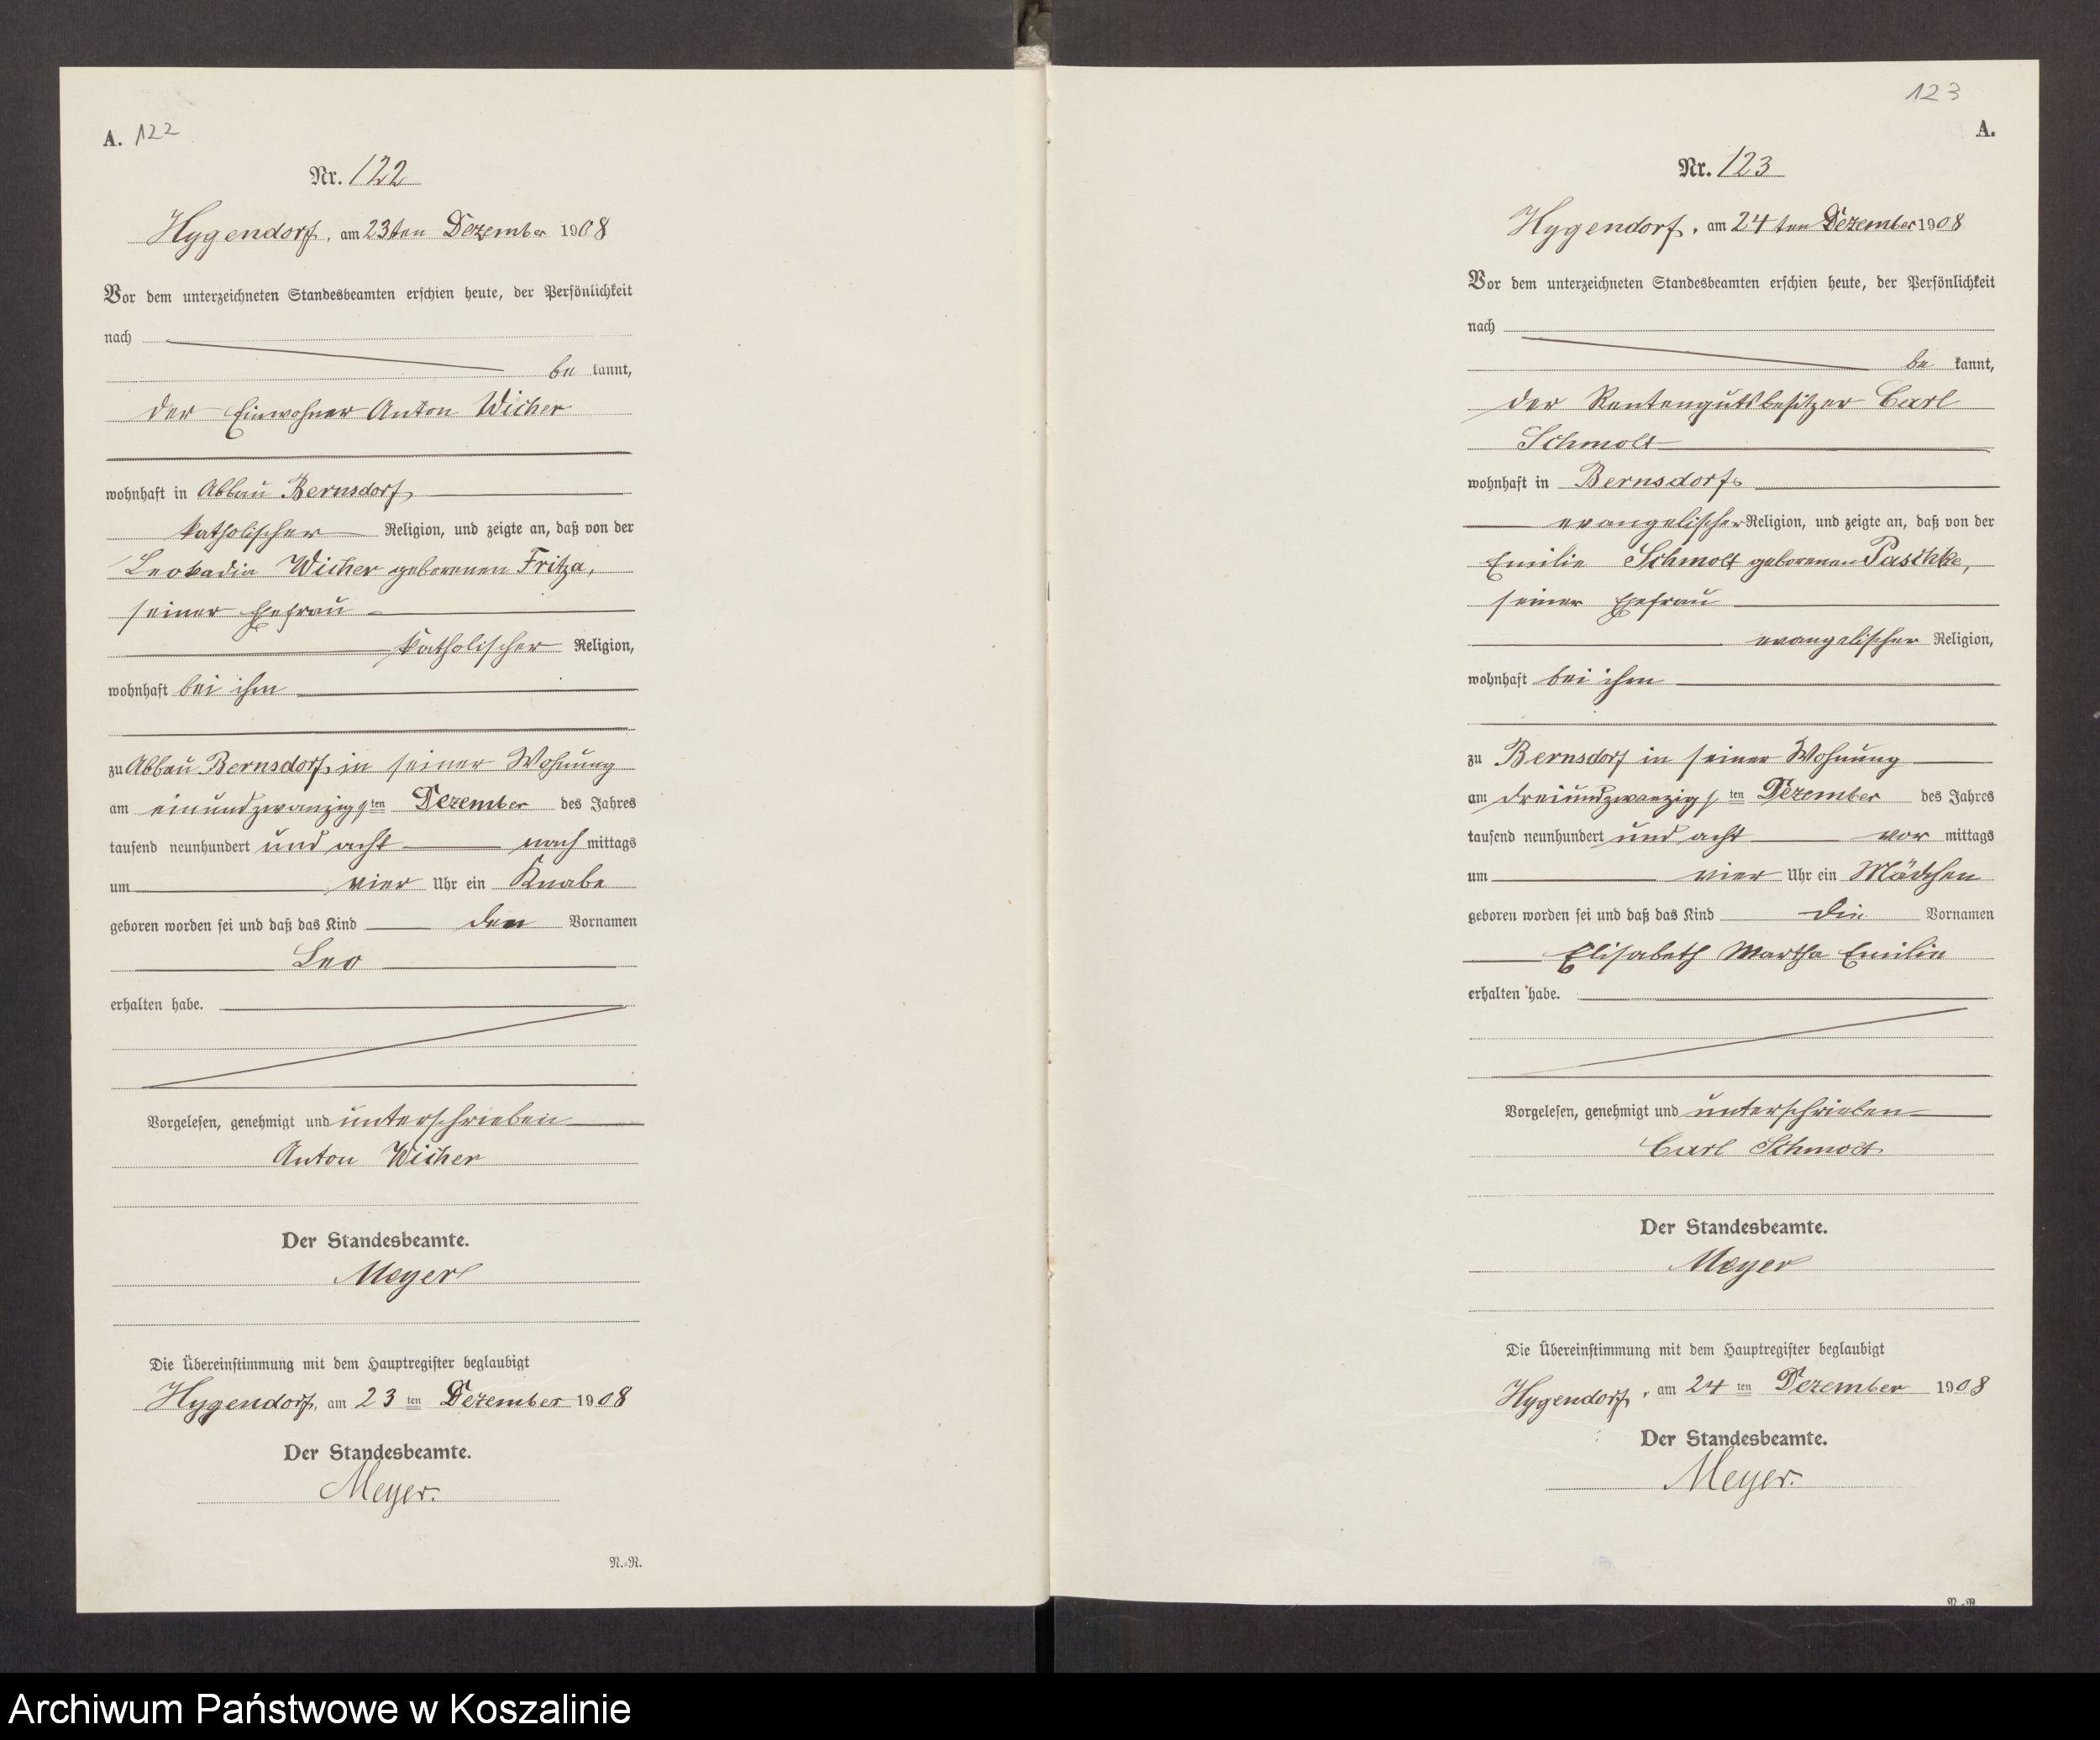 A. 122
Nr. 122
Hygendorf, am 23ten Dezember 1908
Vor dem unterzeichneten Standesbeamten erschien heute, der Persönlichkeit
nach
be kannt,
der Einwohner Anton Wicher
wohnhaft in Abbau Bernsdorf,
katholischer Religion, und zeigte an, daß von der
Leokadia Wicher geborenen Fritza,
seiner Ehefrau
katholischer Religion,
wohnhaft bei ihm
zu Abbau Bernsdorf, in seiner Wohnung
am einundzwanzigsten Dezember des Jahres
tausend neunhundert und acht nach mittags
um vier Uhr ein Knabe
geboren worden sei und daß das Kind den Vornamen
Leo
erhalten habe.
Vorgelesen, genehmigt und unterschrieben
Anton Wicher
Der Standesbeamte.
Meyer
Die Übereinstimmung mit dem Hauptregister beglaubigt
Hygendorf, am 23 ten Dezember 1908
Der Standesbeamte.
Meyer.
N.-R.
123
A.
Nr. 123
Hygendorf, am 24 ten Dezember 1908
Vor dem unterzeichneten Standesbeamten erschien heute, der Persönlichkeit
nach
be kannt,
der Rentengutsbesitzer Carl
Schmolt
wohnhaft in Bernsdorf
evangelischer Religion, und zeigte an, daß von der
Emilie Schmolt geborenen Paschke,
seiner Ehefrau
evangelischer Religion,
wohnhaft bei ihm
zu Bernsdorf in seiner Wohnung
am dreiundzwanzigsten Dezember des Jahres
tausend neunhundert und acht vor mittags
um vier Uhr ein Mädchen
geboren worden sei und daß das Kind die Vornamen
Elisabeth Martha Emilie
erhalten habe.
Vorgelesen, genehmigt und unterschrieben
Carl Schmolt
Der Standesbeamte.
Meyer
Die Übereinstimmung mit dem Hauptregister beglaubigt
Hygendorf, am 24 ten Dezember 1908
Der Standesbeamte.
Meyer.
N.-R.
Archiwum Państwowe w Koszalinie